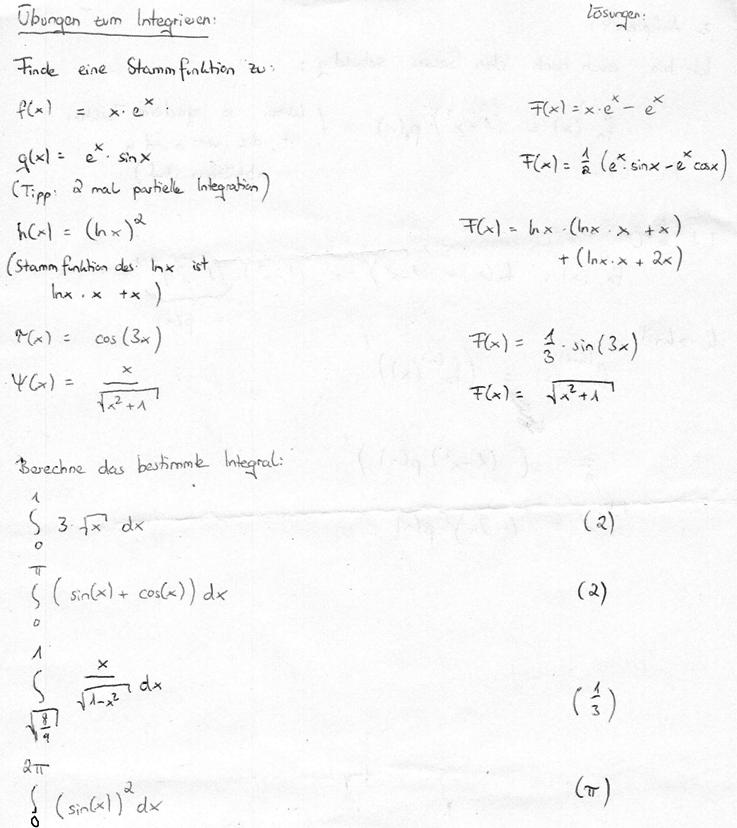 Übungen zum Integrieren: Lösungen:
Finde eine Stammfunktion zu:
f(x) = x · eˣ F(x) = x · eˣ − eˣ
g(x) = eˣ · sin x F(x) = 1/2 (eˣ · sin x − eˣ cos x)
(Tipp: 2 mal partielle Integration)
h(x) = (ln x)² F(x) = ln x · (ln x · x + x)
+ (ln x · x + 2x)
(Stammfunktion des ln x ist
ln x · x + x)
r(x) = cos(3x) F(x) = 1/3 · sin(3x)
Ψ(x) = x/√(x² + 1) F(x) = √(x² + 1)
Berechne das bestimmte Integral:
∫₀¹ 3 · √x dx (2)
∫₀^π (sin(x) + cos(x)) dx (2)
∫_√(8/9)^1 x/√(1−x²) dx (1/3)
∫₀^2π (sin(x))² dx (π)